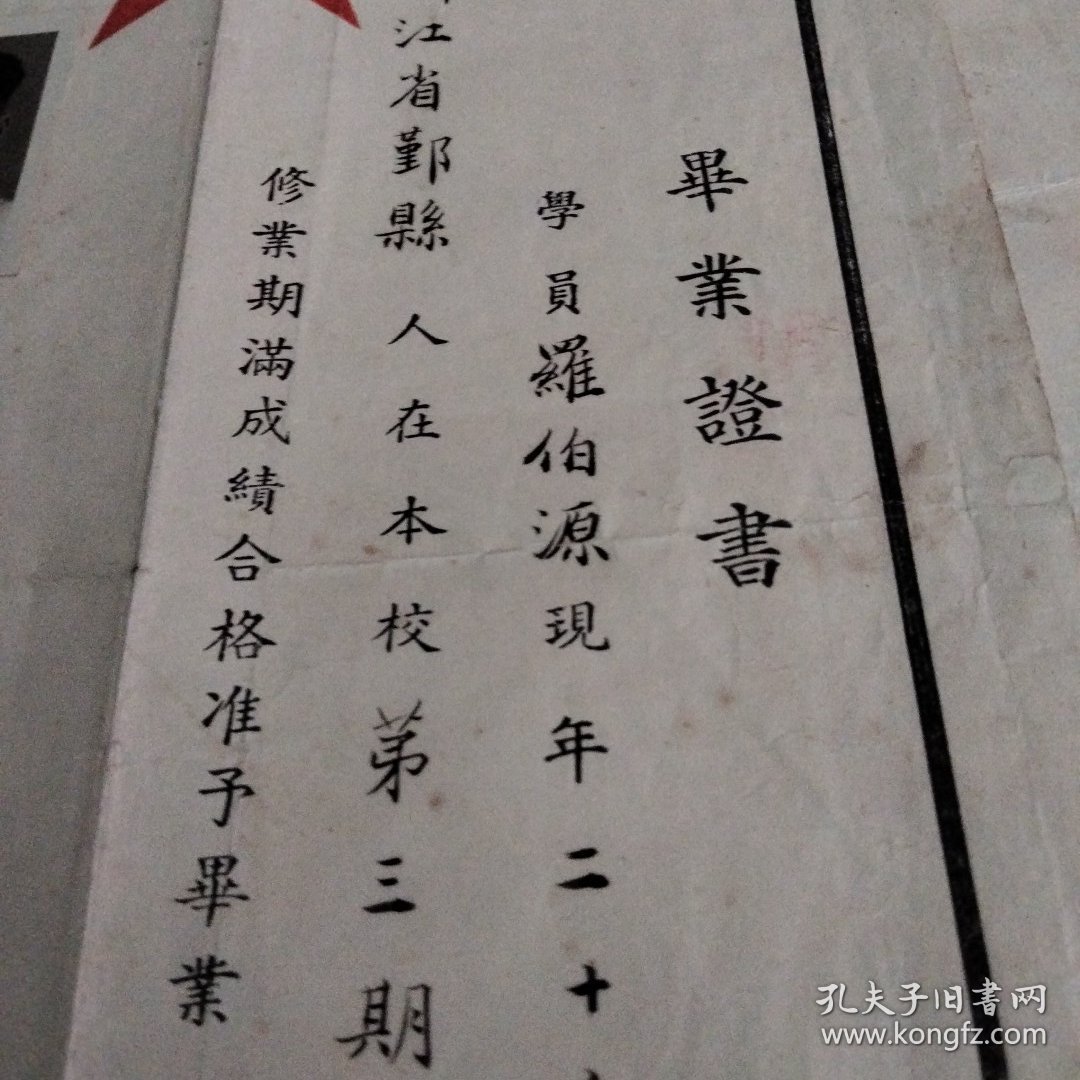 畢業證書
學員羅伯源現年二十
江省鄞縣人在本校第三期
修業期滿成績合格准予畢業
孔夫子旧書网
www.kongfz.com